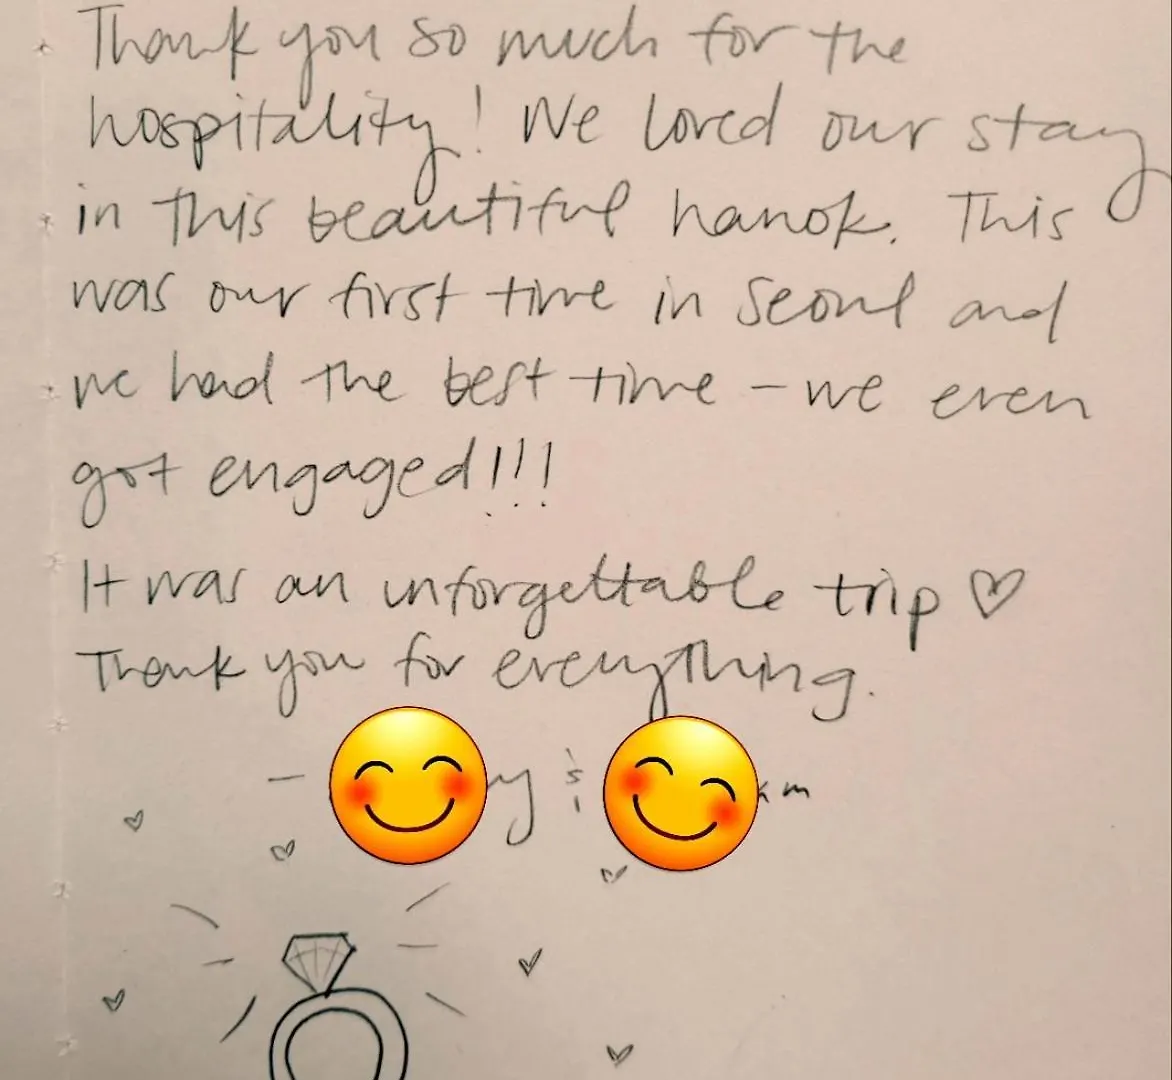 Thank you so much for the
hospitality! We loved our stay
in this beautiful hanok. This
was our first time in Seoul and
we had the best time - we even
got engaged!!!
It was an unforgettable trip ♡
Thank you for everything.